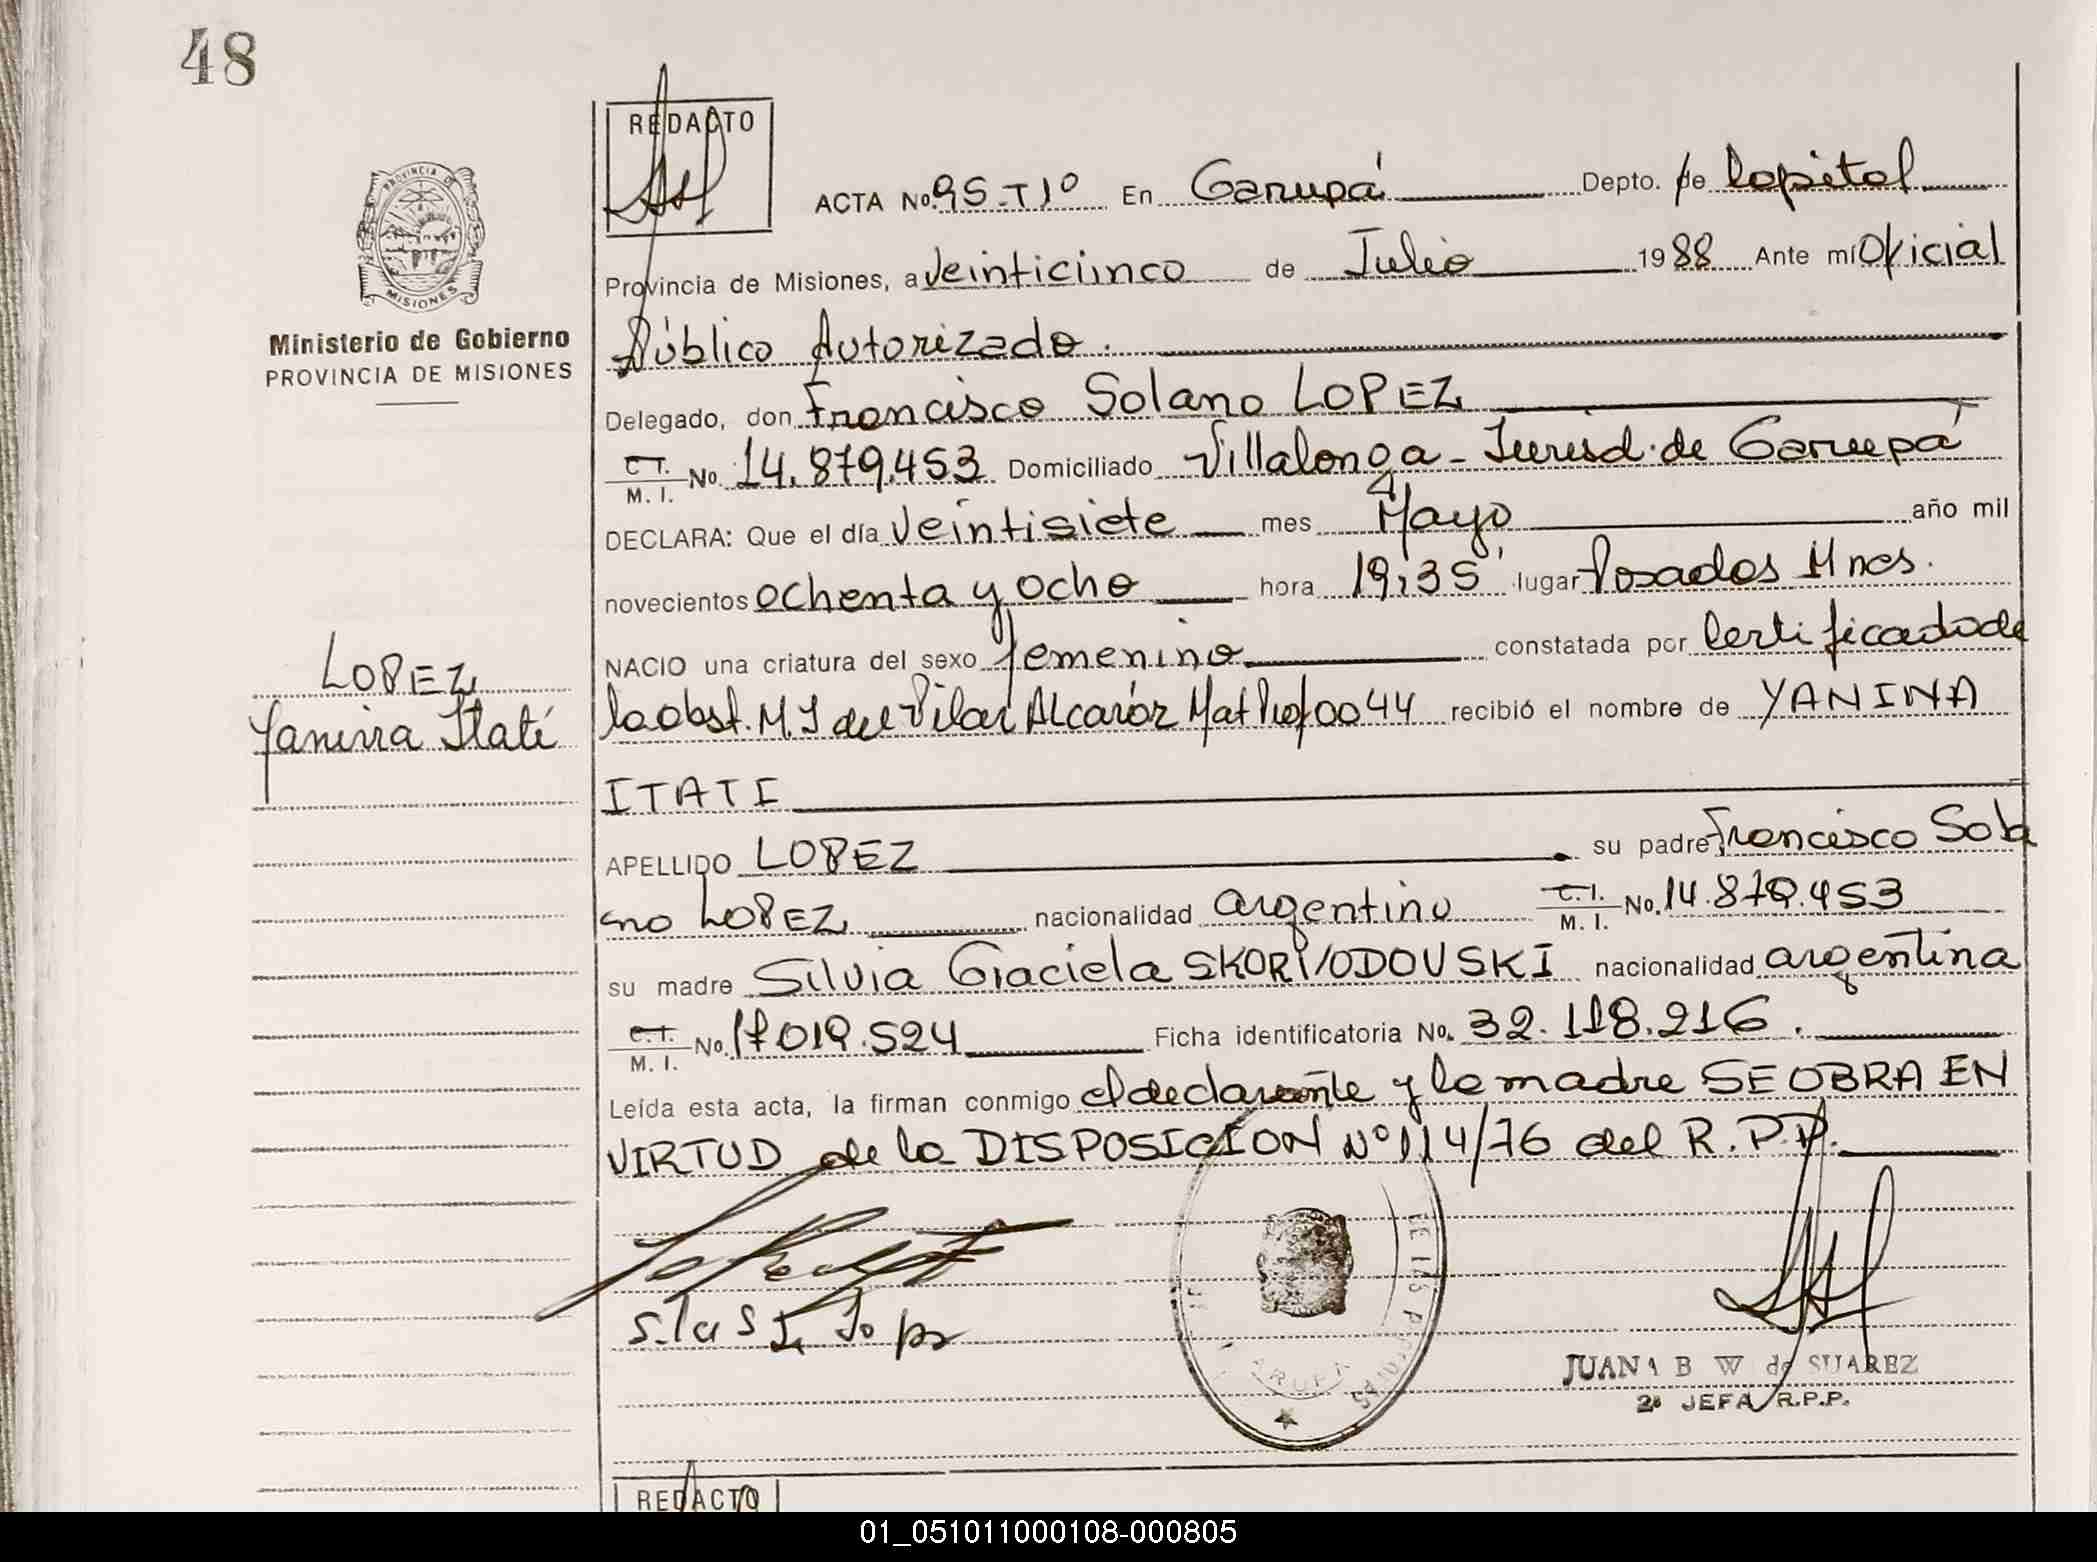 48
REDACTO
ACTA No. 95-T1º En Garupá Depto. de Capital
PROVINCIA DE
MISIONES
Provincia de Misiones, a veinticinco de Julio 1988 Ante mí Oficial
Ministerio de Gobierno
PROVINCIA DE MISIONES
Público Autorizado.
Delegado, don Francisco Solano LOPEZ
C.I. M. I. No. 14.879.453 Domiciliado Villalonga - Jurisd. de Garupá
DECLARA: Que el día veintisiete mes Mayo año mil
novecientos ochenta y ocho hora 19:35' lugar Posadas Mnes.
NACIO una criatura del sexo femenino constatada por Certificado de
LOPEZ
Yanina Itatí
la obst. M. I del Pilar Alcaráz Mat Prof 0044 recibió el nombre de YANINA
ITATI
APELLIDO LOPEZ su padre Francisco Sola
no LOPEZ nacionalidad argentino C.I. M. I. No. 14.879.453
su madre Silvia Graciela nacionalidad argentina
C.I. M. I. No. 17019.524 Ficha identificatoria No. 32.118.216.
Leída esta acta, la firman conmigo el declarante y la madre SE OBRA EN
VIRTUD de la DISPOSICION Nº 114/76 del R.P.P.
JUANA B W de SUAREZ
2ª JEFA R.P.P.
REDACTO
01_051011000108-000805